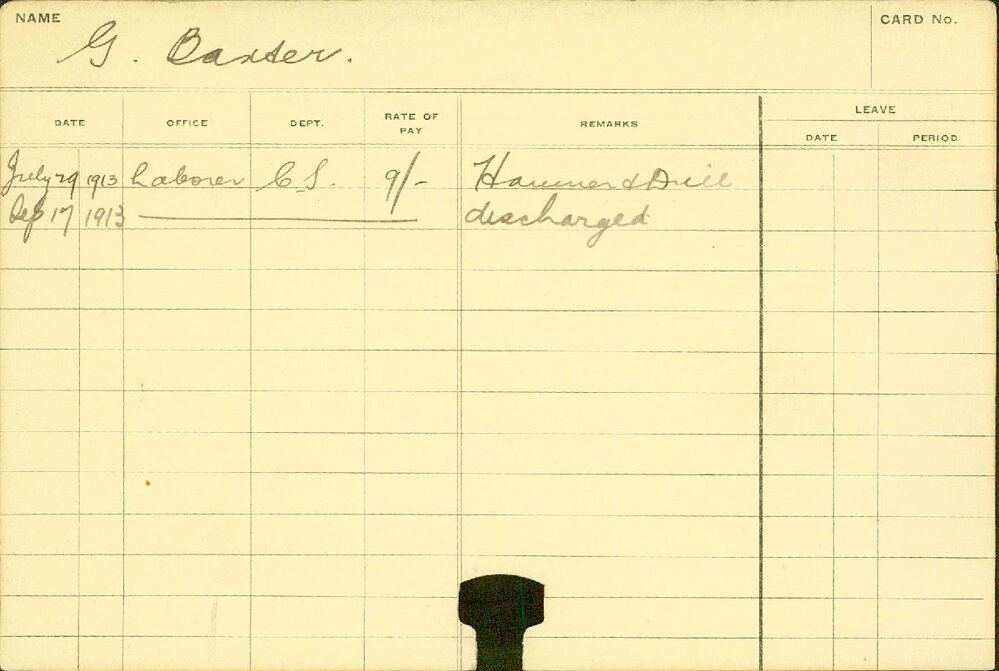 NAME
G. Baxter.
CARD No.
DATE OFFICE DEPT. RATE OF PAY REMARKS LEAVE
DATE PERIOD
July 29 1913 Laborer C.S. 9/- Hammer & Drill
Sep 17 1913 discharged